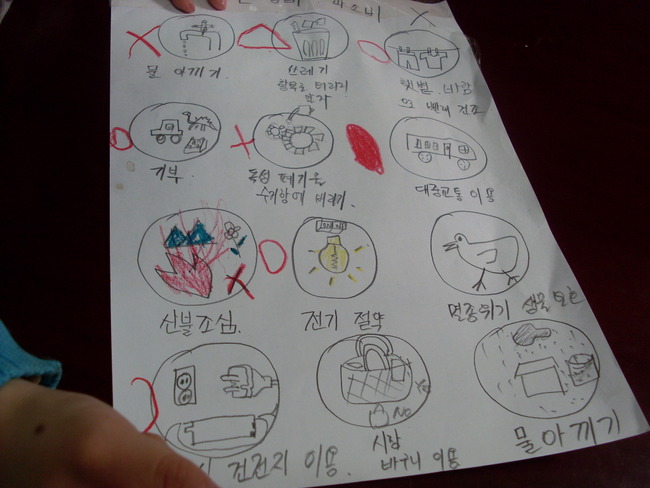 물 아끼기
쓰레기
함부로 버리지
말자
햇볕, 바람
빨래 건조
기부
독성 폐기물
수거함에 버리기.
대중교통 이용
산불조심.
전기 절약
멸종위기 생물 보호
Yes
NO
건전지 이용.
시장
바구니 이용
물아끼기